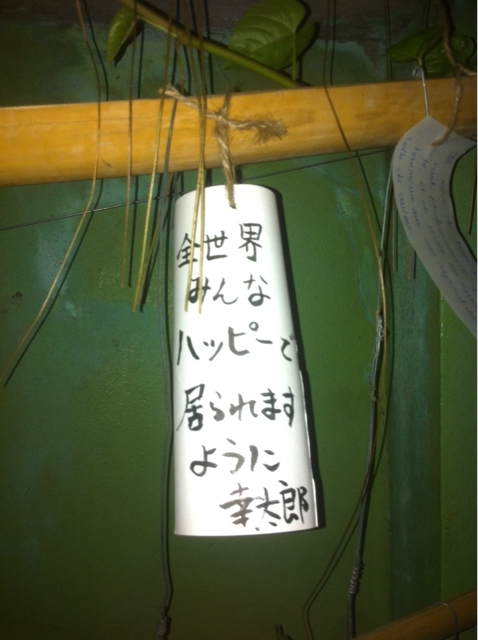 全世界
みんな
ハッピーで
居られます
ように
幸太郎